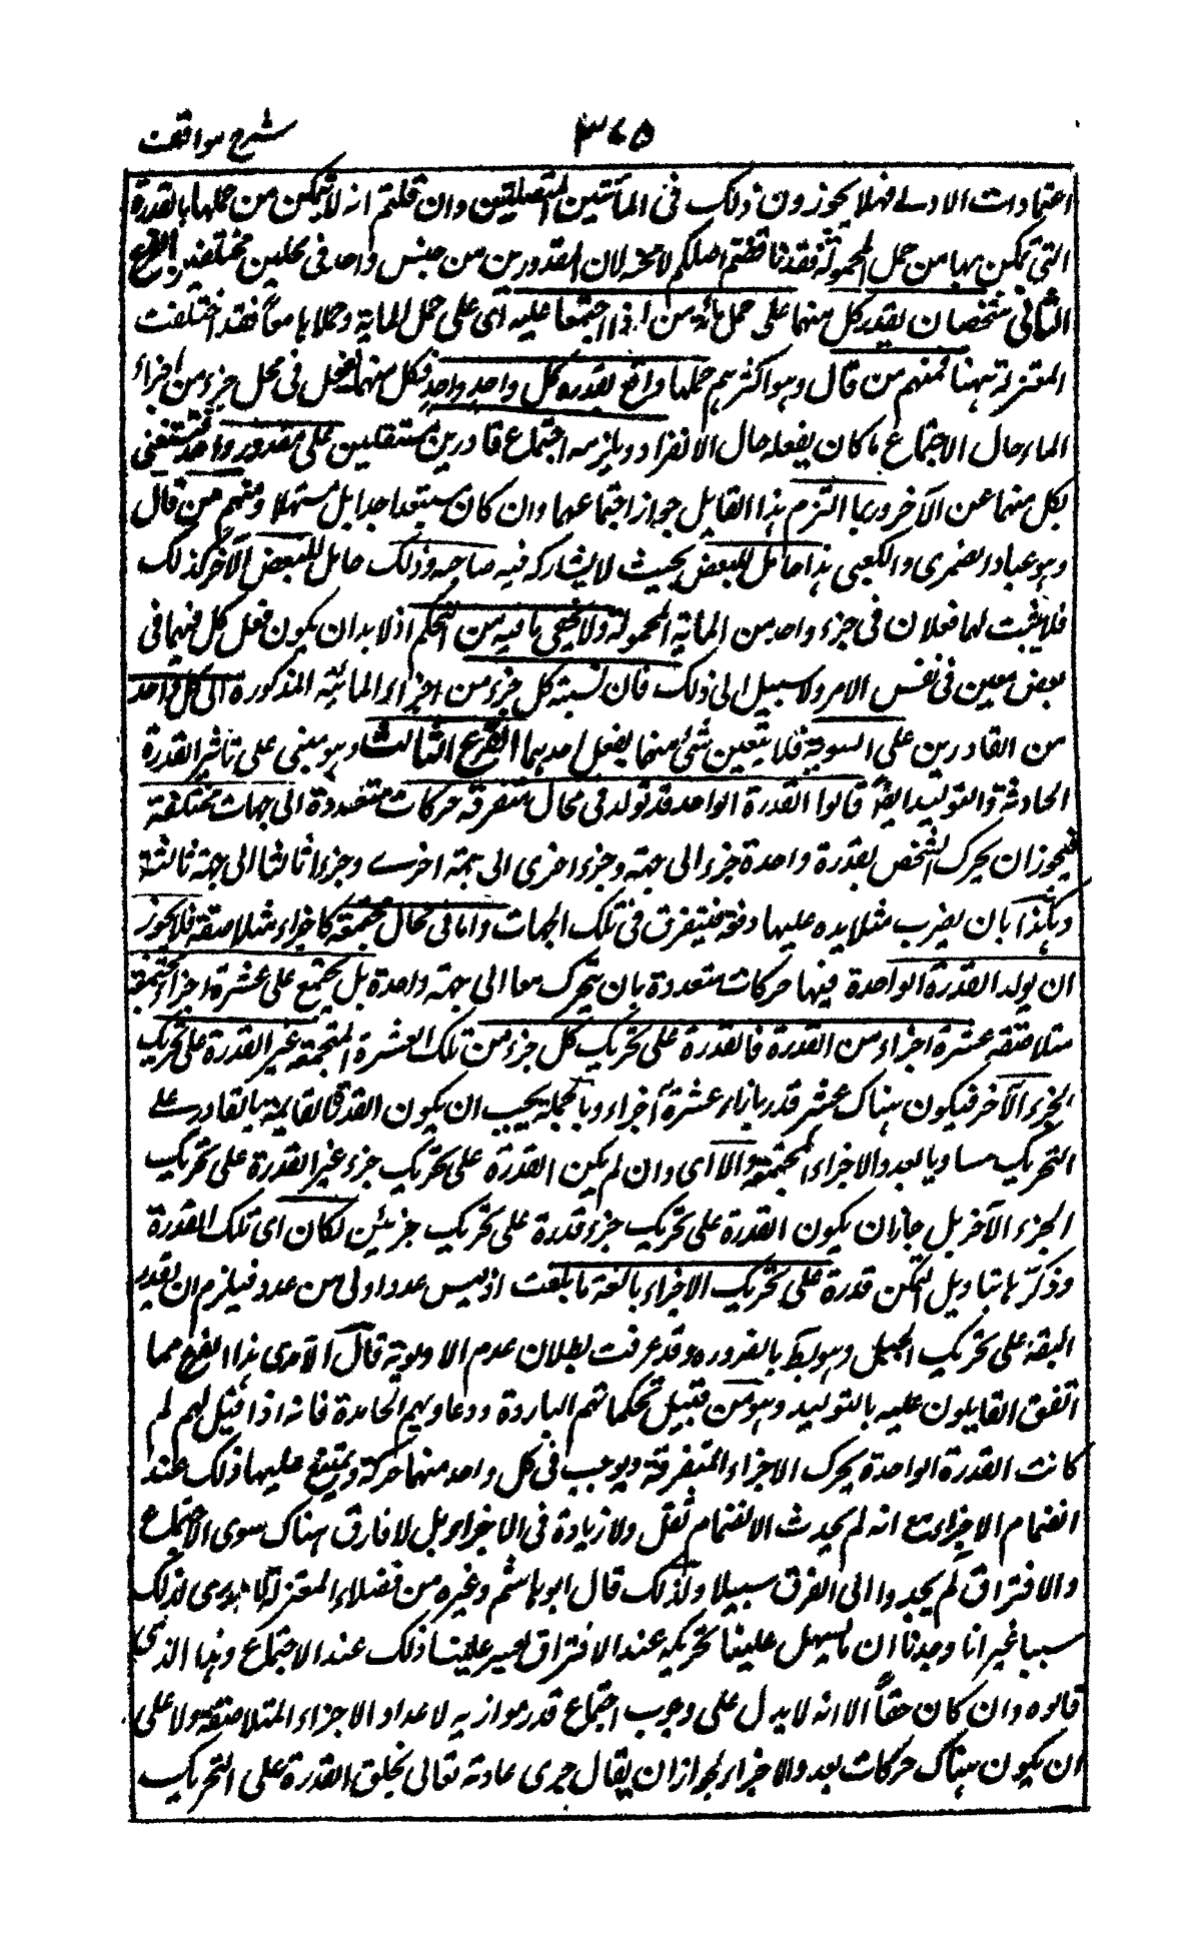 شرح مواقف
٣٧٥
اعتمادات الاولے فہلا یجوزون ذلک فی المأتین المتصلتین وان قلتم انہ لا یتمکن من حملها بالقدرة
التی تمکن بہا من حمل المحمولة فقد ناقضتم اصلکم لا محالة لان المقدورین من جنس واحد فی محلین مختلفین الفرع
الثانی شخصان یقدر کل منہما علی حمل مائة من اذا اجتمعا علیہ ای علی حمل المایة وحملاہا معاً فقد اختلفت
المعتزلة ہہنا فمنہم من قال وہو اکثرہم حملها واقع بقدرة کل واحد واحد فکل منہما یفعل فی محل جزء من اجزاء
الماء حال الاجتماع ما کان یفعلہ حال الانفراد ویلزمہ اجتماع قادرین مستقلین علی مقدور واحد فیستغنی
بکل منہما عن الآخر وربما التزم ہذا القایل جواز اجتماعہما وان کان مستبعدا جدا بل مستحیلا ومنہم من قال
وہو عباد الضمری والکعبی ہذا حامل للبعض بحیث لا یشارکہ فیہ صاحبہ وذلک حامل للبعض الآخر کذلک
فلا یثبت لہما فعلان فی جزء واحد من المایة المحمولة ولا یخفی ما فیہ من التحکم اذ لا بد ان یکون فعل کل منہما فی
بعض معین فی نفس الامر ولا سبیل الی ذلک فان نسبة کل جزء من اجزاء المائة المذکورة الی کل واحد
من القادرین علی السویة فلا یتعین شئ منہا لفعل احدہما الفرع الثالث وہو مبنی علی تاثیر القدرة
الحادثة والتولید ایضاً قالوا القدرة الواحدة قد تولد فی محال متفرقة حرکات متعددة الی جہات مختلفة
فیجوز ان یحرک الشخص بقدرة واحدة جزء الی جہة وجزء اخری الی جہة اخرے وجزءا ثالثا الی جہة ثالثة
وہکذا بان یضرب مثلا یدہ علیہا دفعة فیتفرق فی تلک الجہات واما فی محال مجتمعة کاجزاء متلاصقة فلا یجوز
ان یولد القدرة الواحدة فیہا حرکات متعددة بان یتحرک معا الی جہة واحدة بل یجتمع علی عشرة اجزاء مجتمعة
متلاصقة عشرة اجزاء من القدرة فالقدرة علی تحریک کل جزء من تلک العشرة المجتمعة غیر القدرة علی تحریک
الجزء الآخر فیکون ہناک عشر قدر بازاء عشرة اجزاء وبالجملة یجب ان یکون القدرة القایمة بالقادر علے
التحریک مساویا لعدد الاجزاء المجتمعة والا ای وان لم یکن القدرة علی تحریک جزء غیر القدرة علی تحریک
الجزء الآخر بل جاز ان یکون القدرة علی تحریک جزء قدرة علی تحریک جزئین لکان ای تلک القدرة
وذکرہا بتاویل التمکن قدرة علی تحریک الاجزاء بالغة ما بلغت اذ لیس عدد اولی من عدد فیلزم ان یقدر
البقة علی تحریک الجبل وہو بط بالضرورة وقد عرفت بطلان عدم الاولویة قال الآمدی ہذا الفرع مما
اتفق القایلون علیہ بالتولید وہو من قبیل تحکماتہم الباردة ودعاویہم الجامدة فانہ اذا قیل لہم لم
کانت القدرة الواحدة یحرک الاجزاء المتفرقة ویوجب فی کل واحد منہا حرکة ویمتنع علیہا ذلک عند
انضمام الاجزاء مع انہ لم یحدث الانضمام ثقل ولا زیادة فی الاجزاء بل لا فارق ہناک سوی الاجتماع
والافتراق لم یجدوا الی الفرق سبیلا ولذلک قال ابو ہاشم وغیرہ من فضلاء المعتزلة لا ندری لذلک
سببا غیر انا وجدنا ان ما یسہل علینا تحریکہ عند الافتراق یعسر علینا ذلک عند الاجتماع وہذا الذی
قالوہ وان کان حقاً الا انہ لا یدل علی وجوب اجتماع قدر موازیہ لاعداد الاجزاء المتلاصقة ولا علی
ان یکون ہناک حرکات بعدد الاجزاء لجواز ان یقال جری عادتہ تعالی بخلق القدرة علی التحریک